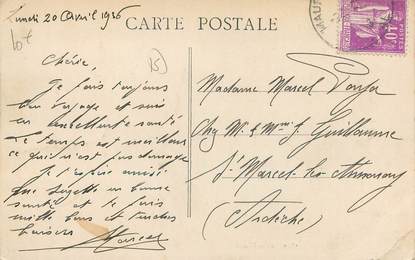 Lundi 20 Avril 1936
CARTE POSTALE
Chérie,
Je fais toujours
bon voyage et suis
en excellente santé
Le temps est meilleur
ce qui n'est pas dommage
Je t'espère ainsi
que Suzette en bonne
santé et te fais
mille bons et tendres
baisers
Marcel
Madame Marcel
Chez Mr & Mme J. Guillaume
St Marcel-les-Annonay
(Ardèche)
POSTES